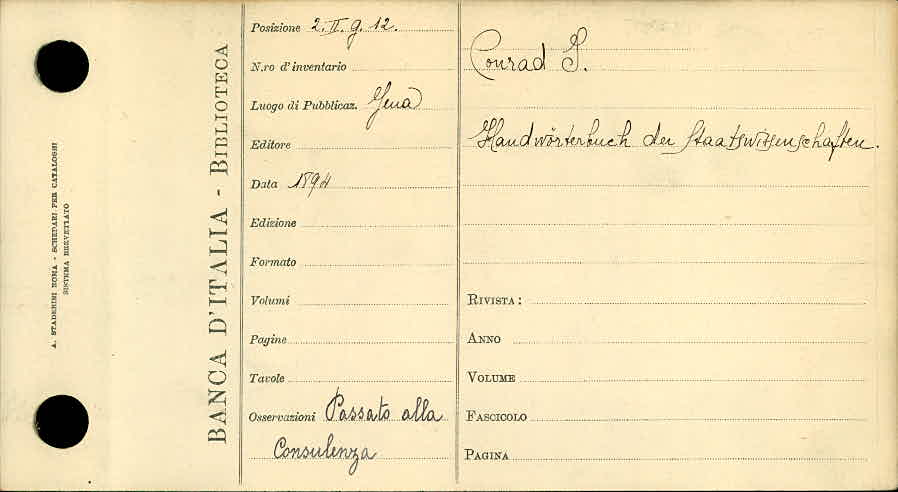 A. STADERINI ROMA - SCHEDARI PER CATALOGHI
SISTEMA BREVETTATO
BANCA D'ITALIA - BIBLIOTECA
Posizione 2. II. g. 12.
N.ro d'inventario
Luogo di Pubblicaz. Jena
Editore
Data 1894
Edizione
Formato
Volumi
Pagine
Tavole
Osservazioni Passato alla
Consulenza
Conrad J.
Handwörterbuch der Staatswissenschaften.
RIVISTA:
ANNO
VOLUME
FASCICOLO
PAGINA